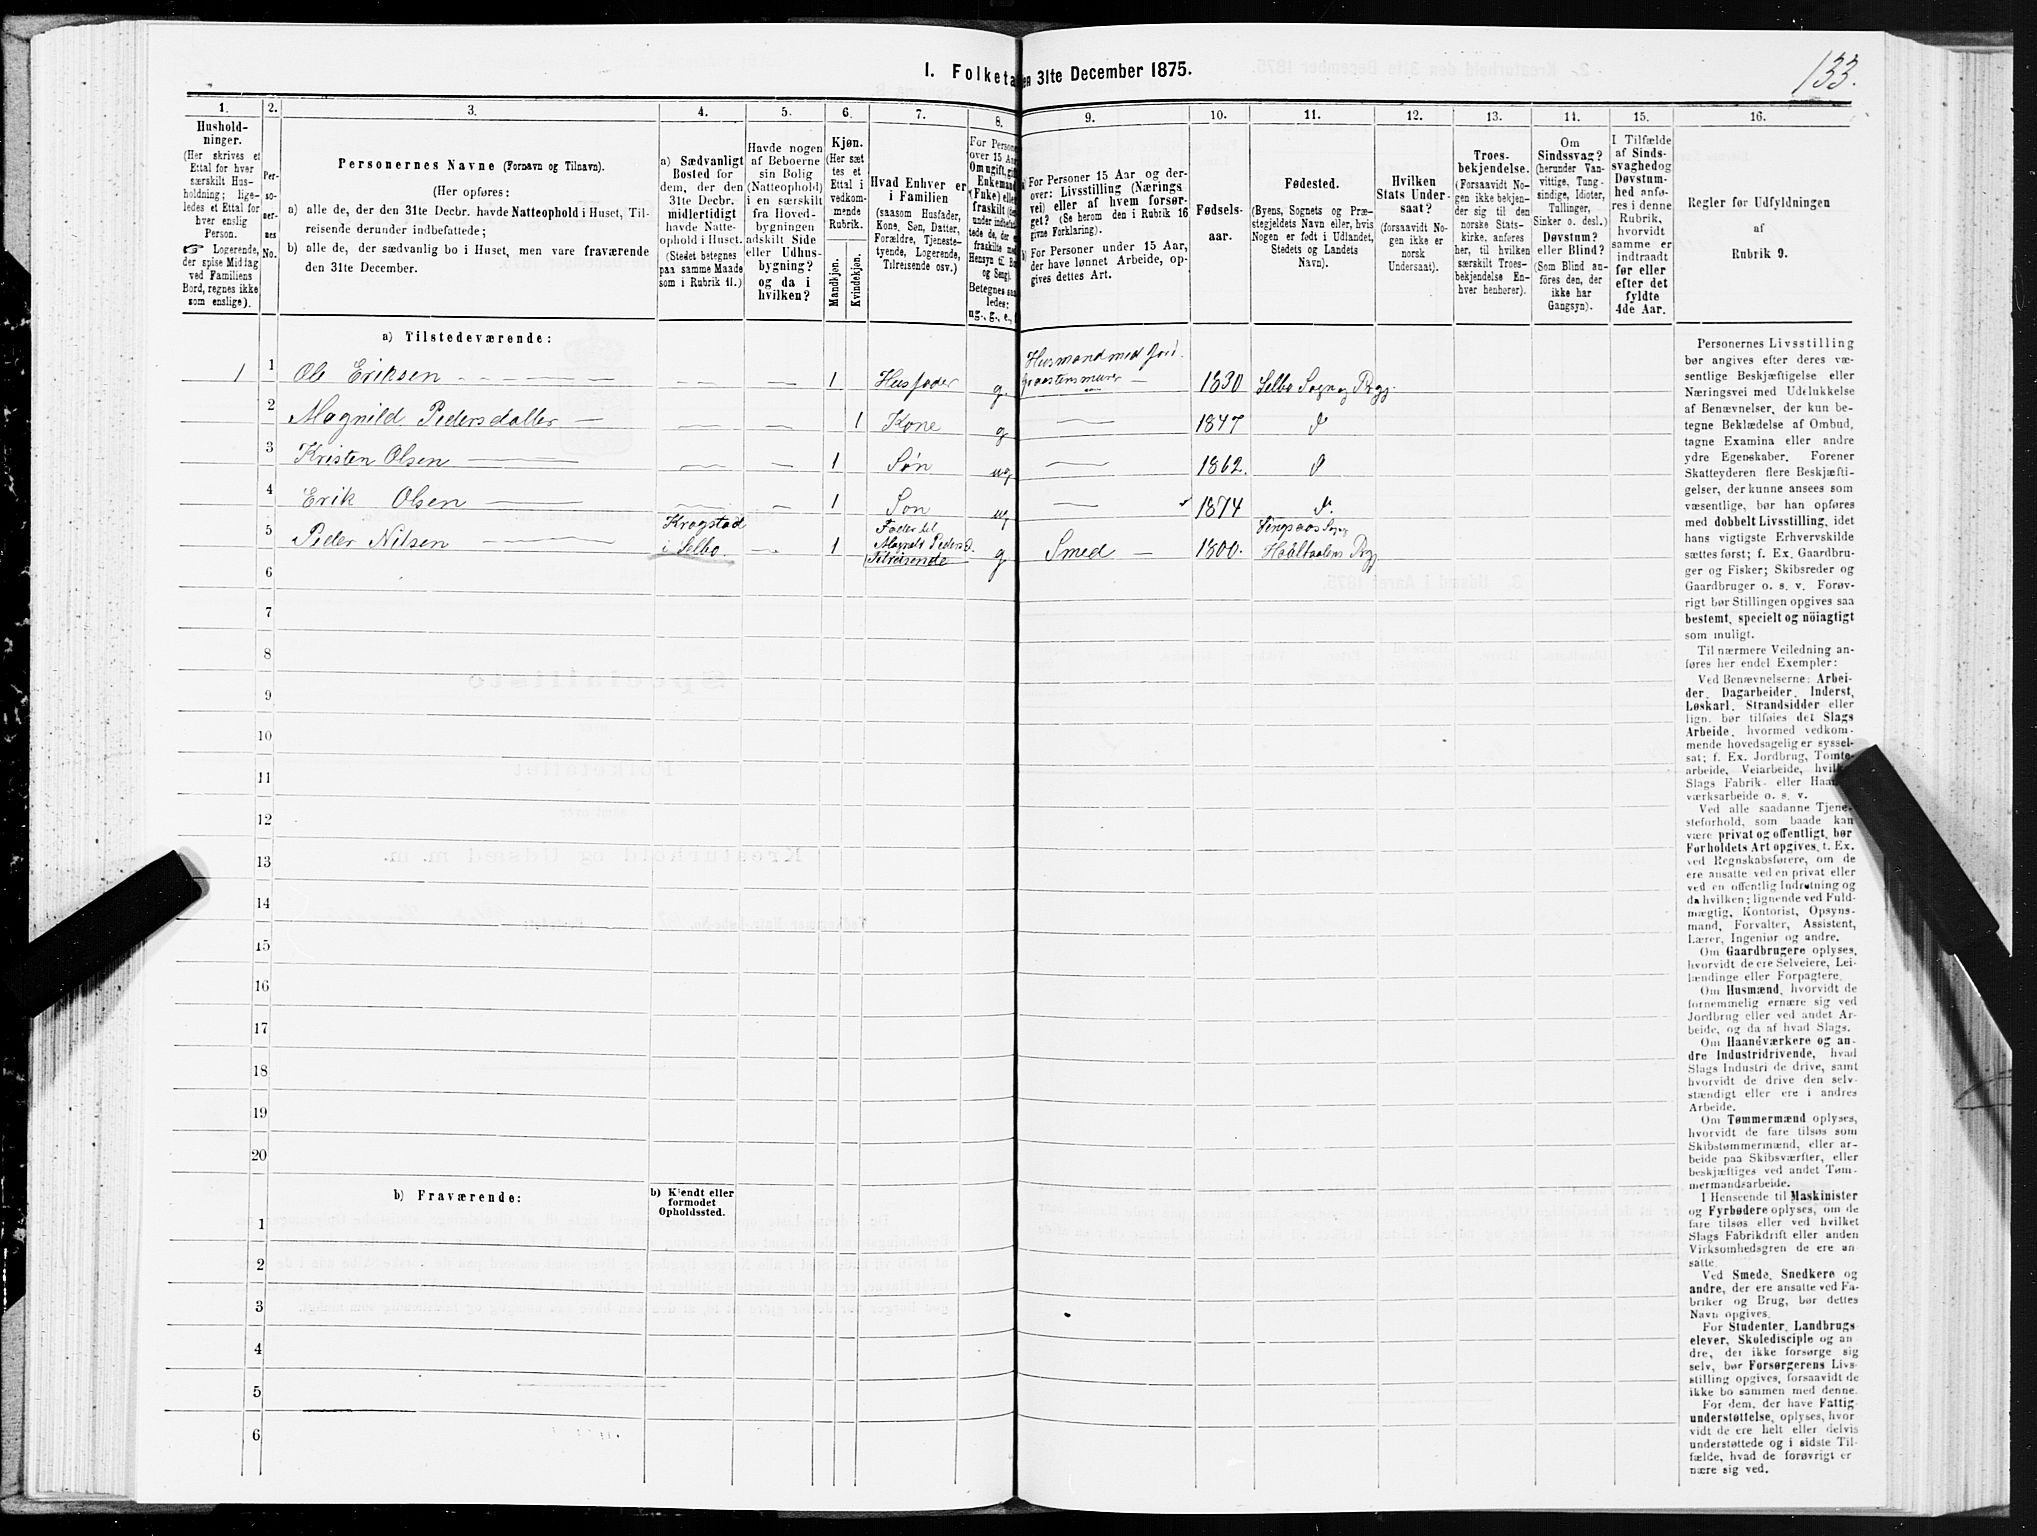 133.
I. Folketa en 31te December 1875.
1. 2. 3. 4. 5. 6. 7. 8. 9. 10. 11. 12. 13. 14. 15. 16.
Hushold-
ninger.
(Her skrives et
Ettal for hver
særskilt Hus-
holdning; lige-
ledes et Ettal for
hver enslig
Person.
☞ Logerende,
der spise Middag
ved Familiens
Bord, regnes ikke
som enslige).
Per-
so-
ner-
nes
No.
Personernes Navne (Fornavn og Tilnavn).
(Her opføres:
a) alle de, der den 31te Decbr. havde Natteophold i Huset, Til-
reisende derunder indbefattede;
b) alle de, der sædvanlig bo i Huset, men vare fraværende
den 31te December.
a) Sædvanligt
Bosted for
dem, der den
31te Decbr.
midlertidigt
havde Natte-
ophold i Huset.
(Stedet betegnes
paa samme Maade
som i Rubrik 11.)
Havde nogen
af Beboerne
sin Bolig
(Natteophold)
i en særskilt
fra Hoved-
bygningen
adskilt Side
eller Udhus-
bygning?
og da i
hvilken?
Kjøn.
(Her sæt
tes et
Ettal i
vedkom-
mende
Rubrik.
Mandkjøn.
Kvindekjøn.
Hvad Enhver er
i Familien
(saasom Husfader,
Kone, Søn, Datter,
Forældre, Tjeneste-
tyende, Logerende,
Tilreisende osv.)
For Persone
over 15 Aar
Om ugift, gift
Enkemand
(Enke) elle
fraskilt (de
under indbefat
tede de, der e
fraskilte med
Hensyn til Bo
og Seng).
Betegnes saa
ledes:
ug., g., e., f
a) For Personer 15 Aar og der-
over: Livsstilling (Nærings
vei) eller af hvem forsør-
get? (Se herom den i Rubrik 16
givne Forklaring).
b) For Personer under 15 Aar,
der have lønnet Arbeide, op-
gives dettes Art.
Fødsels-
aar.
Fødested.
(Byens, Sognets og Præ-
stegjeldets Navn eller, hvis
Nogen er født i Udlandet,
Stedets og Landets
Navn).
Hvilken
Stats Under-
saat?
(forsaavidt No-
gen ikke er
norsk
Undersaat).
Troes-
bekjendelse.
(Forsaavidt No-
gen ikke bekjen-
der sig til den
norske Stats-
kirke, anføres
her, til hvilken
særskilt Troes-
bekjendelse En-
hver henhører).
Om
Sindssvag?
(herunder Van-
vittige, Tung-
sindige, Idioter,
Tullinger,
Sinker o. desl.)
Døvstum?
eller Blind?
(Som Blind an-
føres den, der
ikke har
Gangsyn).
I Tilfælde
af Sinds-
svaghed og
Døvstum-
hed anfø-
res i denne
Rubrik,
hvorvidt
samme er
indtraadt
før eller
efter det
fyldte
4de Aar.
Regler for Udfyldningen
af
Rubrik 9.
a) Tilstedeværende:
1 1 Ole Eriksen 1 Husfader g. Husmand med Jord. Graastensmurer 1830 Selbo Sogn og Prgj.
2 Magnild Pedersdatter 1 Kone g 1847
3 Kristen Olsen 1 Søn ug 1862.
4 Erik Olsen 1 Søn ug 1874
5 Peder Nilsen Kragstad i Selbo. 1 Fader til Magnild Pedersd. Tilreisende g Smed 1800. Haaltaalen Prgj
6
7
8
9
10
11
12
13
14
15
16
17
18
19
20
b) Fraværende:
b) Kjendt eller
formodet
Opholdssted.
1
2
3
4
5
6
Personernes Livsstilling
bør angives efter deres væ-
sentlige Beskjæftigelse eller
Næringsvei med Udelukkelse
af Benævnelser, der kun be-
tegne Beklædelse af Ombud,
tagne Examina eller andre
ydre Egenskaber. Forener
Skatteyderen flere Beskjæfti-
gelser, der kunne ansees som
væsentlige, bør han opføres
med dobbelt Livsstilling, idet
hans vigtigste Erhvervskilde
sættes først; f. Ex. Gaardbru-
ger og Fisker; Skibsreder og
Gaardbruger o. s. v. Forøv-
rigt bør Stillingen opgives saa
bestemt, specielt og nöiagtigt
som muligt.
Til nærmere Veiledning an-
føres her endel Exempler:
Ved Benævnelserne: Arbei-
der, Dagarbeider, Inderst,
Løskarl, Strandsidder eller
lign. bør tilføies det Slags
Arbeide, hvormed vedkom-
mende hovedsagelig er syssel-
sat; f. Ex. Jordbrug, Tomte-
arbeide, Veiarbeide, hvilket
Slags Fabrik- eller Haand-
værksarbeide o. s. v.
Ved alle saadanne Tjene-
steforhold, som baade kan
være privat og offentligt, bør
Forholdets Art opgives, f. Ex.
ved Regnskabsførere, om de
ere ansatte ved en privat eller
ved en offentlig Indretning og
da hvilken; lignende ved Fuld-
mægtig, Kontorist, Opsyns-
mand, Forvalter, Assistent,
Lærer, Ingeniør og andre.
Om Gaardbrugere oplyses,
hvorvidt de ere Selveiere, Lei-
lændinge eller Forpagtere.
Om Husmænd, hvorvidt de
fornemmelig ernære sig ved
Jordbrug eller ved andet Ar-
beide, og da af hvad Slags.
Om Haandværkere og an-
dre Industridrivende, hvad
Slags Industri de drive, samt
hvorvidt de drive den selv-
stændigt eller ere i andres
Arbeide.
Om Tømmermænd oplyses,
hvorvidt de fare tilsøs som
Skibstømmermænd, eller ar-
beide paa Skibsværfter, eller
beskjæftiges ved andet Tøm-
mermandsarbeide.
I Henseende til Maskinister
og Fyrbødere oplyses, om de
fare tilsøs eller ved hvilket
Slags Fabrikdrift eller anden
Virksomhedsgren de ere an-
satte.
Ved Smede, Snedkere og
andre, der ere ansatte ved Fa-
briker og Brug, bør dettes
Navn opgives.
For Studenter, Landbrugs-
elever, Skoledisciple og an-
dre, der ikke forsørge sig
selv, bør Forsørgerens Livs-
stilling opgives, forsaavidt de
ikke bo sammen med denne.
For dem, der have Fattig-
understøttelse, oplyses, hvor
vidt de ere helt eller delvis
understøttede og i sidste Til-
fælde, hvad de forøvrigt er
nære sig ved.